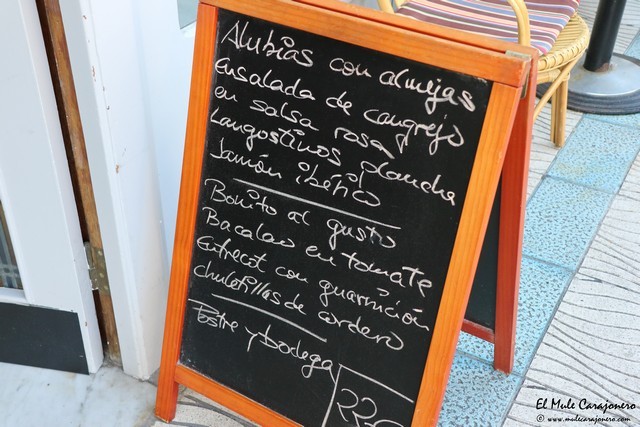 Alubias con almejas
Ensalada de cangrejo
en salsa rosa
Langostinos plancha
Jamón ibético
Bonito al gusto
Bacalao en tomate
Entrecot con guarnición
chuletillas de cordero
Postre y bodega
22
El Mule Carajonero
© www.mulecarajonero.com